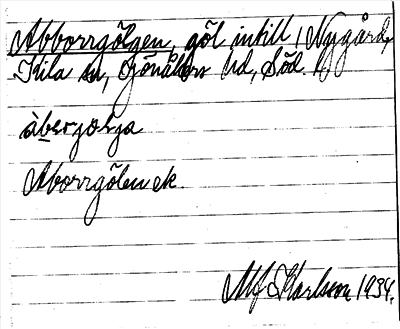 Abborrgölgen, göl intill 1 Nygård,
Kila sn, Jönåkers hd, Söd. l.,
àberjølja
Aborrgölen ek.
Alf E Karlsson 1934.